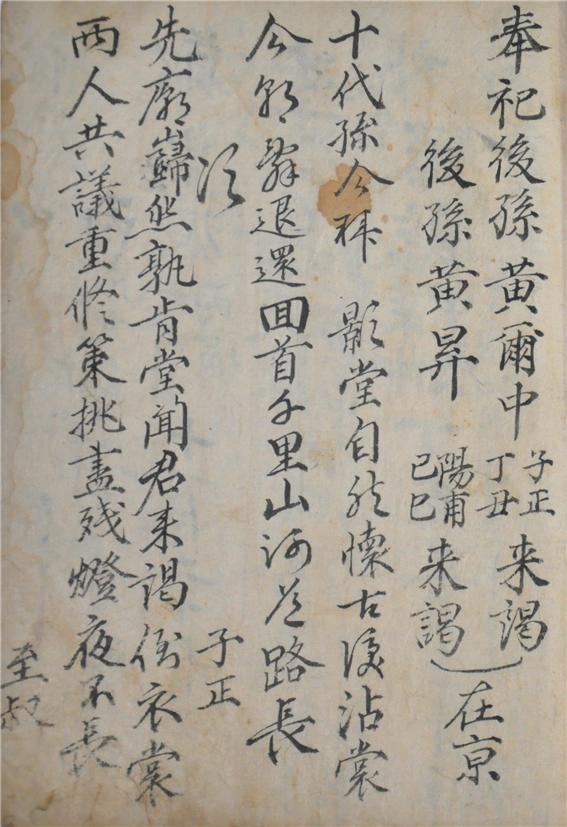 奉祀後孫黃爾中 子正 丁丑 来謁
後孫黃昇 陽甫 己巳 来謁 在京
十代孫今拜 影堂自然懷古淚沾裳
今朝辭退還回首千里山河道路長
子正
次
先廟巋然孰肯堂聞君来謁倒衣裳
两人共議重修策挑盡残燈夜不長
至叔